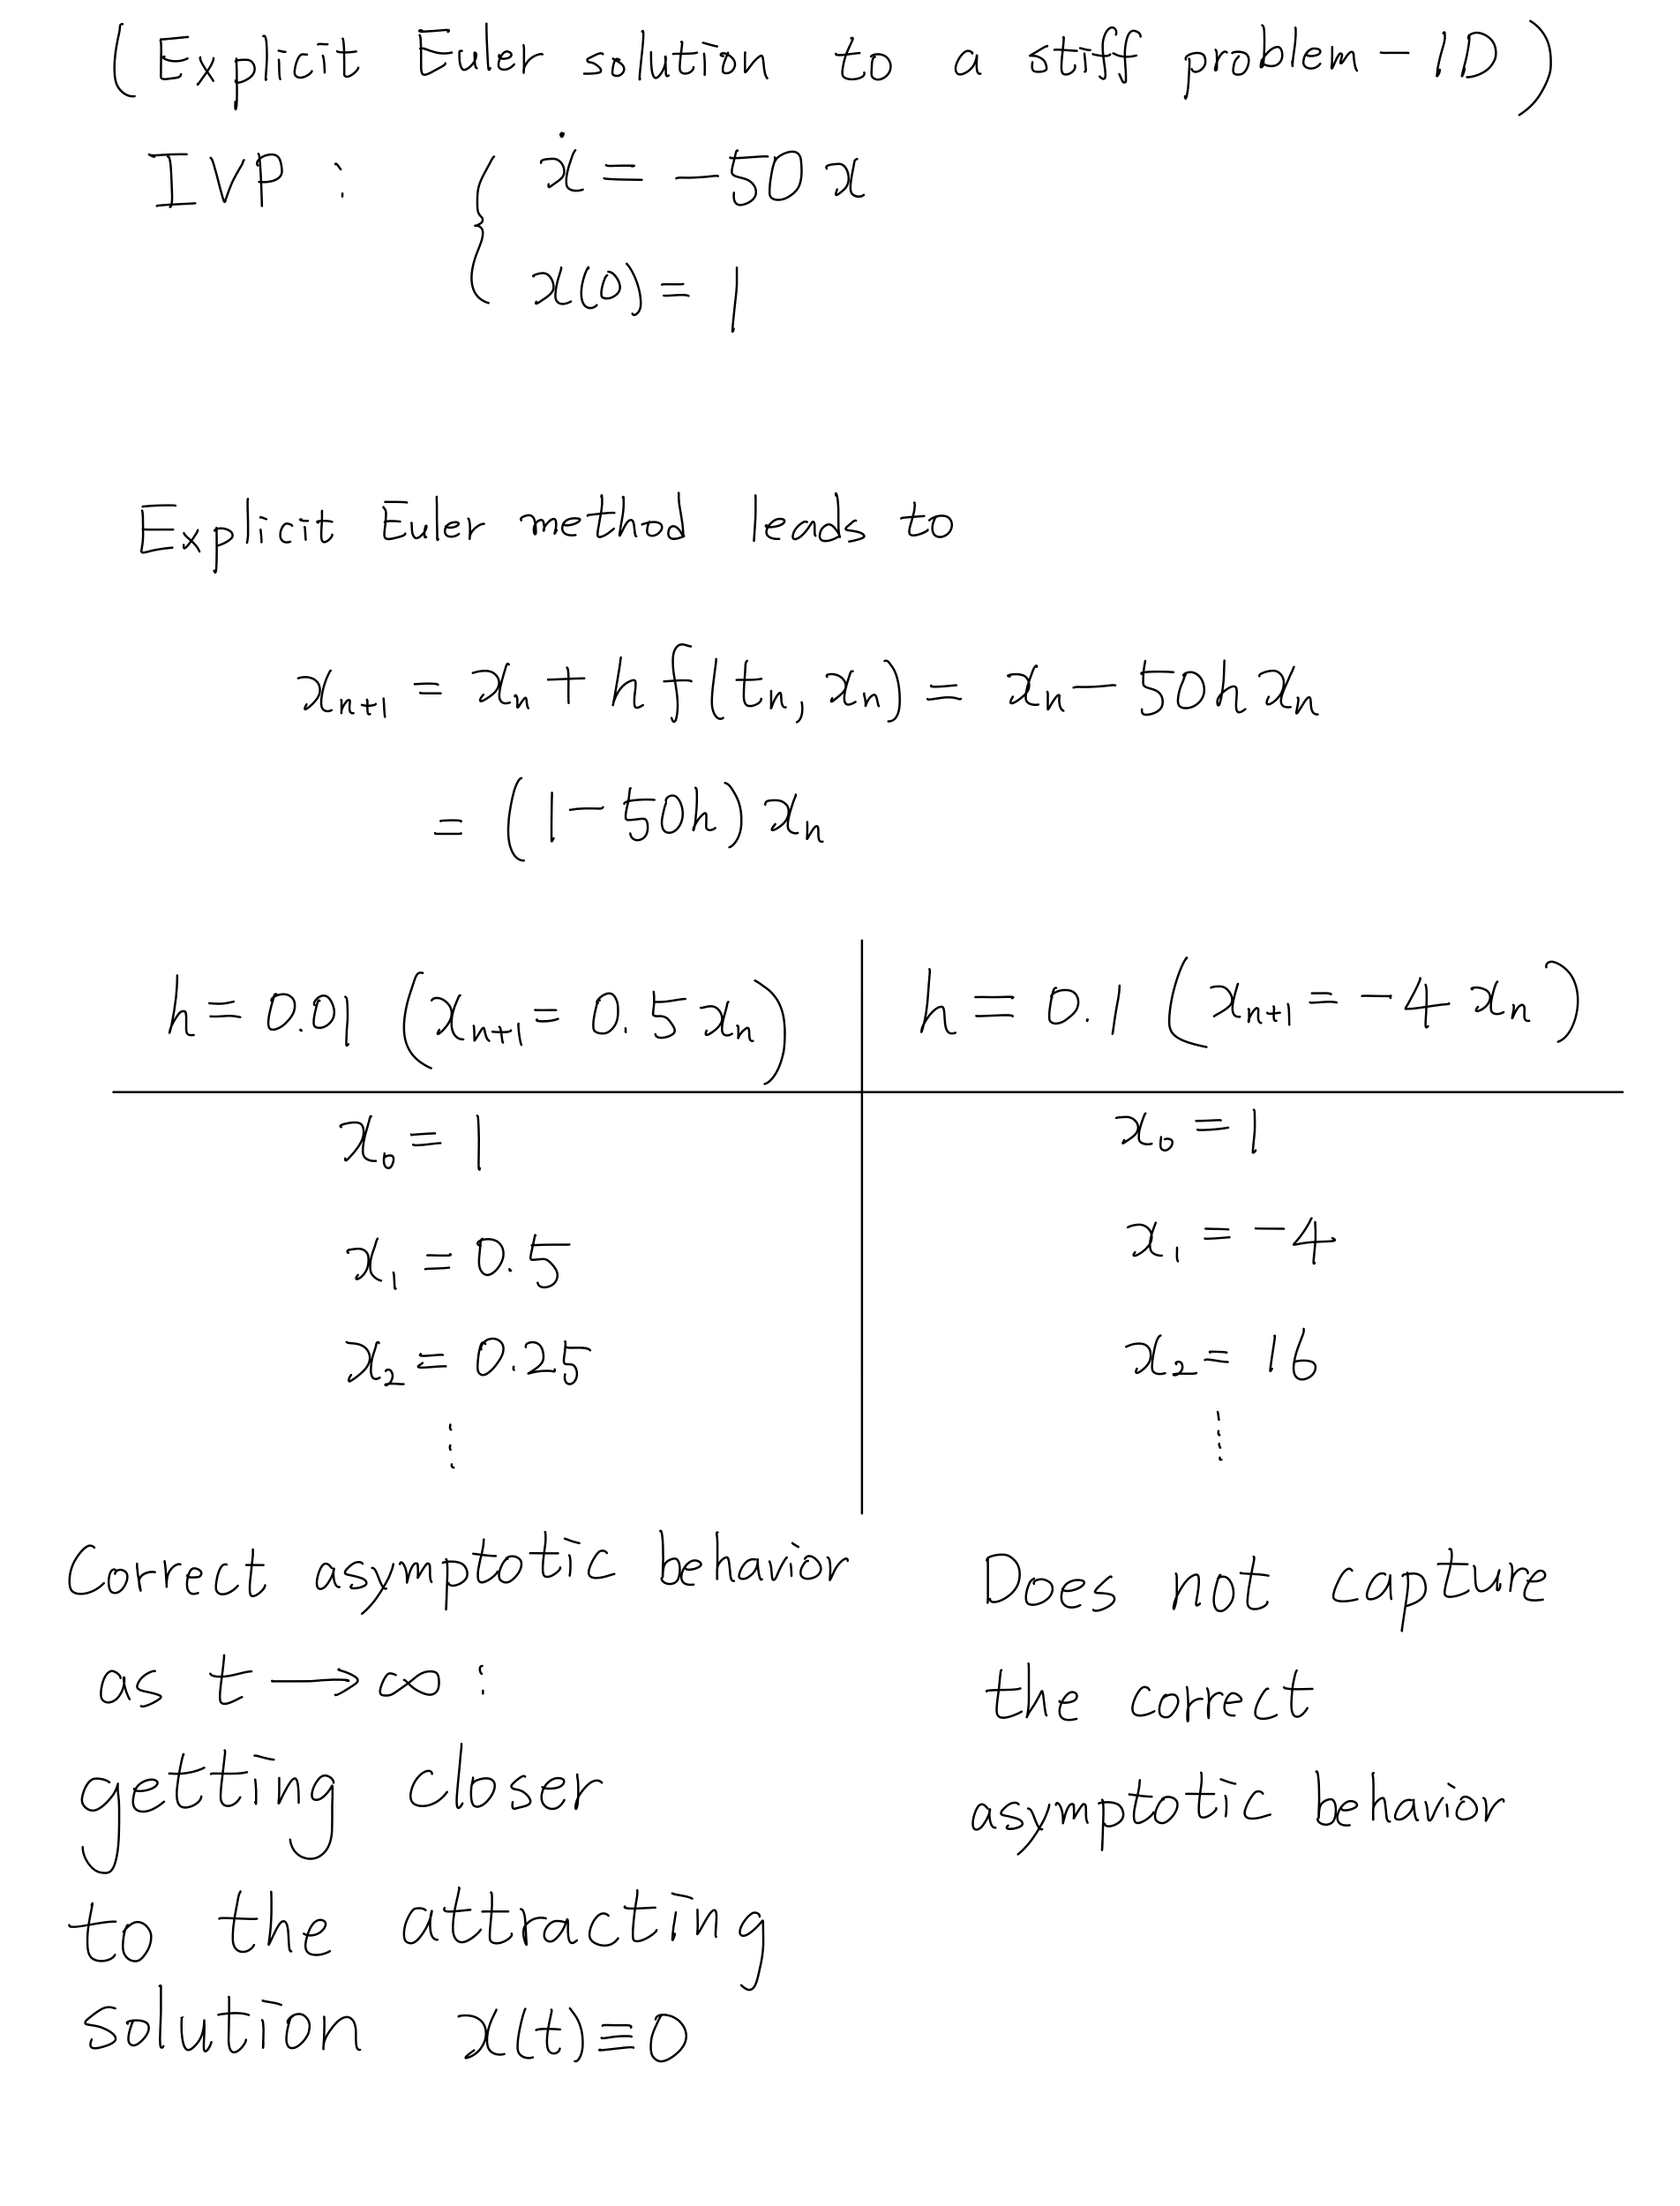 (Explicit Euler solution to a stiff problem - 1D)
IVP : { ẋ = -50x
x(0) = 1
Explicit Euler method leads to
xₙ₊₁ = xₙ + h f(tₙ, xₙ) = xₙ - 50h xₙ
= (1 - 50h) xₙ
h = 0.01 (xₙ₊₁ = 0.5 xₙ)
x₀ = 1
x₁ = 0.5
x₂ = 0.25
⋮
Correct asymptotic behavior
as t → ∞ :
getting closer
to the attracting
solution x(t) ≡ 0
h = 0.1 (xₙ₊₁ = -4 xₙ)
x₀ = 1
x₁ = -4
x₂ = 16
⋮
Does not capture
the correct
asymptotic behavior